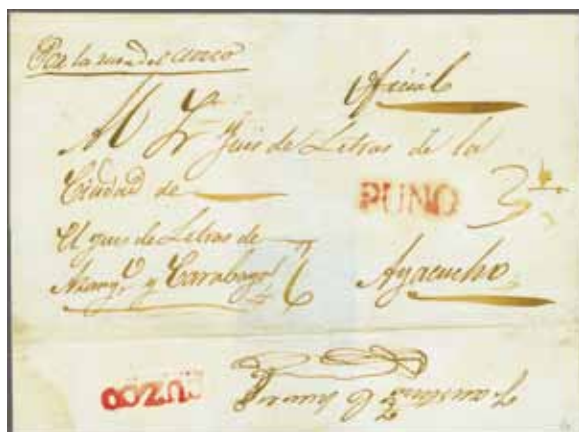 Por la via del Cuzco
Oficial
Al Sr. Jues de Letras de la
Ciudad de
PUNO
3
El jues de Letras de
Azang.o y Carabaya
6
Ayacucho
CUZCO